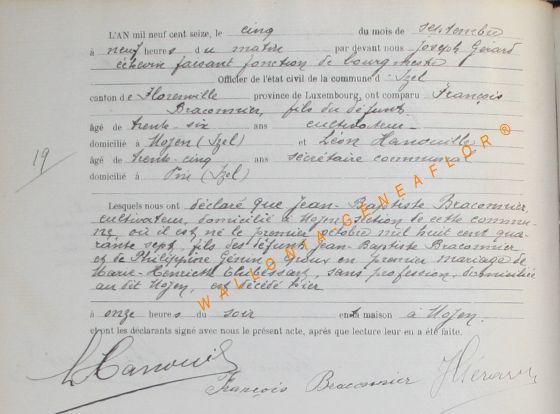 L'AN mil neuf cent seize, le cinq du mois de septembre
à neuf heures du matin par devant nous Joseph Gérard
échevin faisant fonction de bourgmestre
Officier de l'état civil de la commune d'Izel
canton de Florenville province de Luxembourg, ont comparu François
Braconnier, fils du défunt
âgé de trente-six ans cultivateur
domicilié à Moyen (Izel) et Léon Hanouille
âgé de trente-cinq ans secrétaire communal
19
domicilié à Pin (Izel)
Lesquels nous ont déclaré que Jean-Baptiste Braconnier,
cultivateur, domicilié à Moyen section de cette commu-
ne, où il est né le premier octobre mil huit cent qua-
rante sept, fils des défunts Jean-Baptiste Braconnier
et de Philippine Génin, époux en premier mariage de
Marie-Henriette, sans profession, domiciliée
au dit Moyen, est décédé hier
à onze heures du soir en sa maison à Moyen.
et ont les déclarants signé avec nous le présent acte, après que lecture leur en a été faite.
LHanouille
François Braconnier JGérard
WALLONIA GENEAFLOR ®